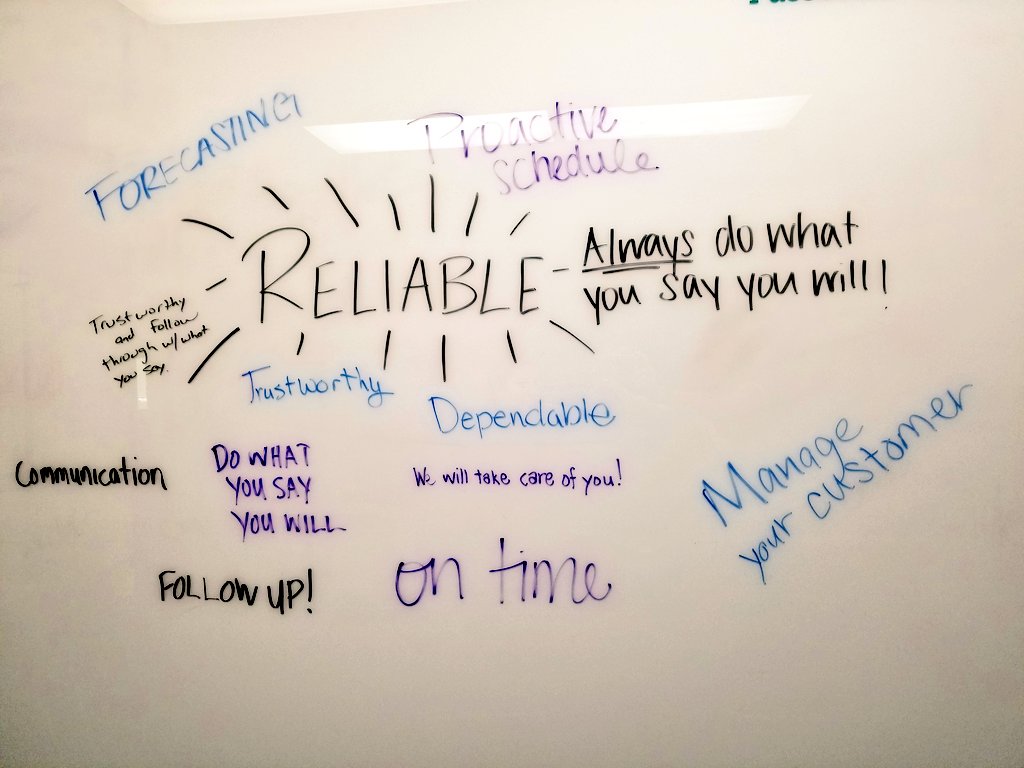 FORECASTING
Proactive
schedule
RELIABLE - Always do what
you say you will!
Trustworthy
and follow
through w/what
you say.
Trustworthy
Dependable
Manage
your customer
Communication
DO WHAT
YOU SAY
YOU WILL
We will take care of you!
FOLLOW UP!
on time